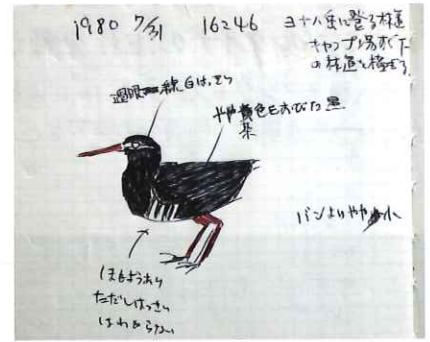 1980 7/31 16246 ヨナハ岳に登る林道
キャンプ場すぐ下
の林道を横ぎる
過眼線 白はっきり
やや黄色をおびた黒
茶
バンよりやや小
ただしはっきり